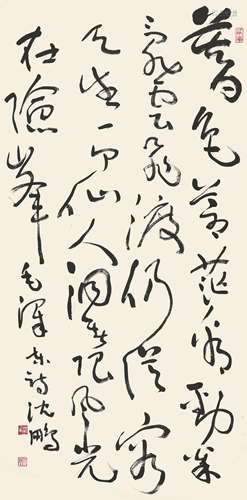 暮色苍茫看劲松
乱云飞渡仍从容
天生一个仙人洞无限风光
在险峰 毛泽东诗 沈鹏